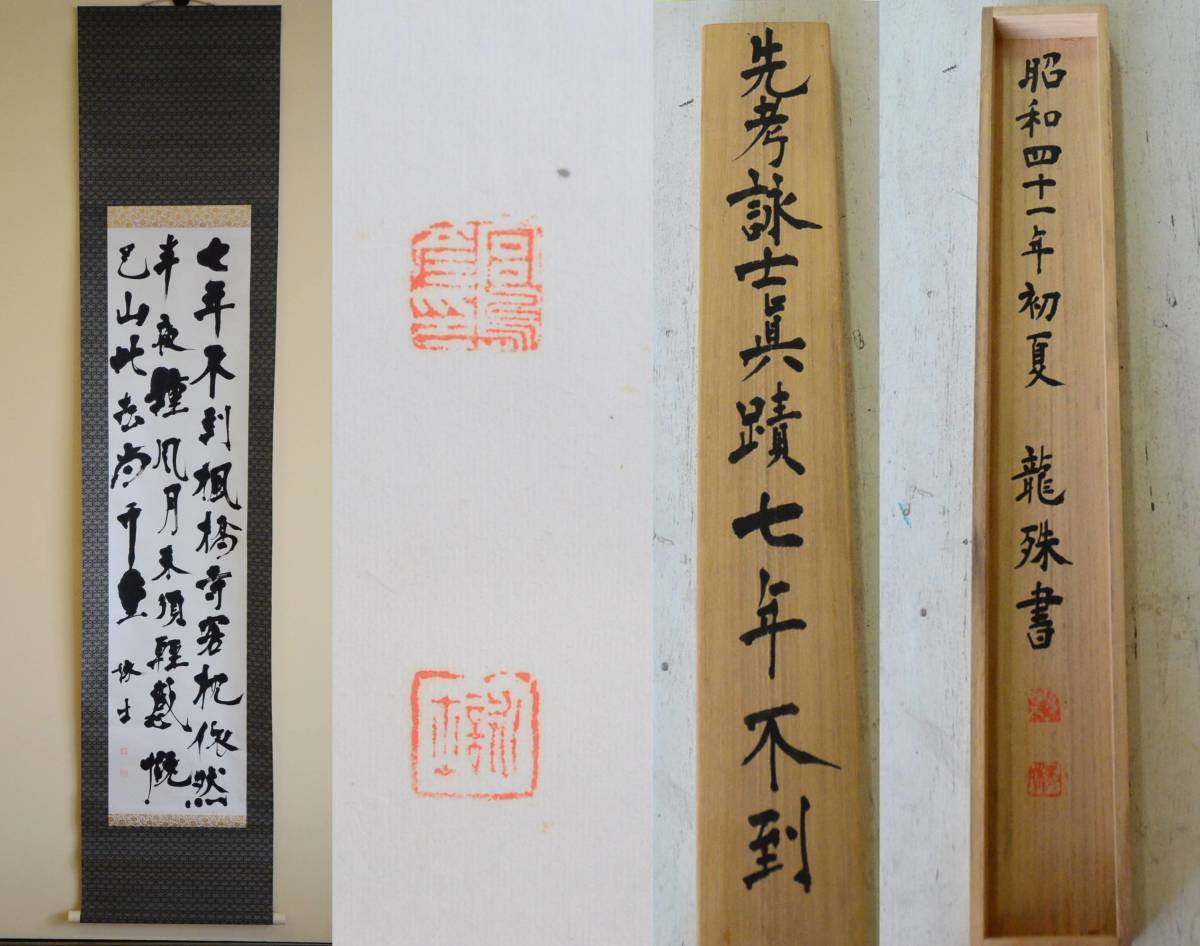 七年不到楓橋寺客枕依然
半夜鐘風月未須輕感慨
巴山此去尚千重
詠士
詠士
先考詠士眞蹟七年不到
昭和四十一年初夏
龍殊書